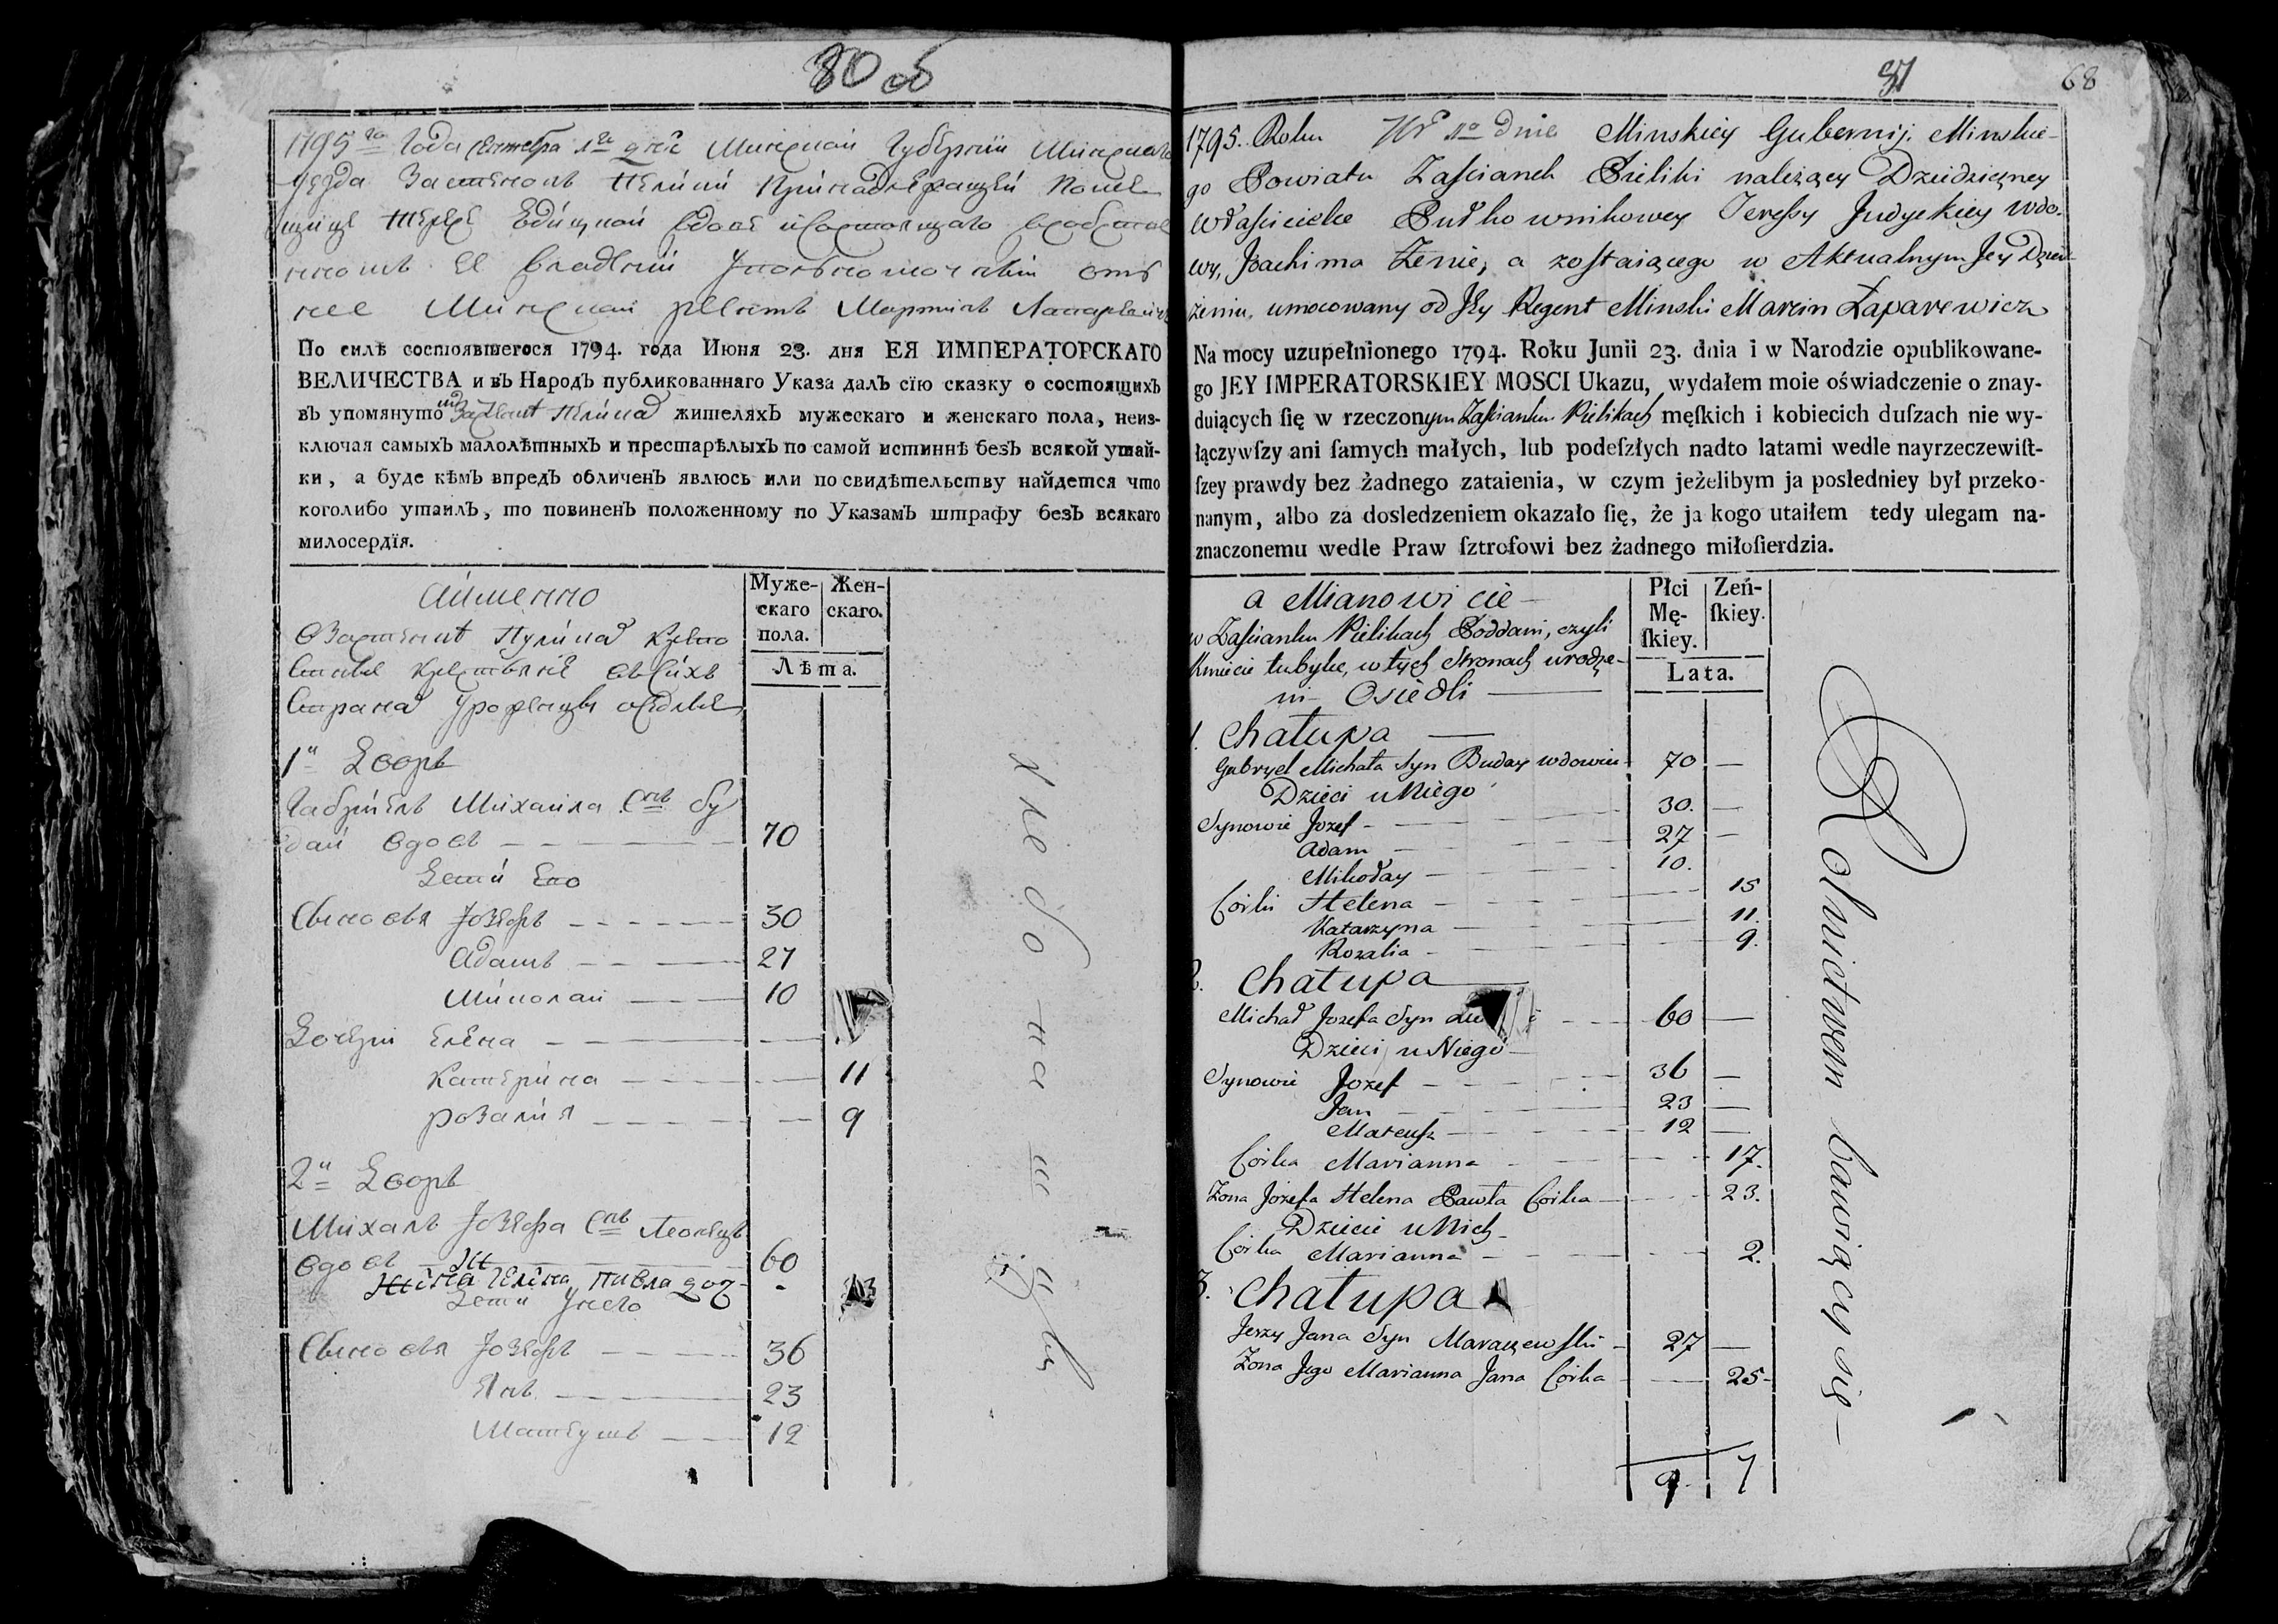 80 об
1795го Года Сентября 1го дня Минской Губернии Минскаго
уезда Застенокъ Пелики принадлежащей помѣ-
щице Терезе Вдове
ее владении Уполномоченный отъ
нее Минской регентъ Мартинъ Лапаревичъ
По силѣ состоявшегося 1794. года Июня 23. дня ЕЯ ИМПЕРАТОРСКАГО
ВЕЛИЧЕСТВА и въ Народъ публикованнаго Указа далъ сїю сказку о состоящихъ
въ упомянуто жителяхъ мужескаго и женскаго пола, неиз-
ключая самыхъ малолѣтныхъ и престарѣлыхъ по самой истиннѣ безъ всякой утай-
ки, а буде кѣмъ впредь обличенъ явлюсь или по свидѣтельству найдется что
коголибо утаилъ, то повиненъ положенному по Указамъ штрафу безъ всякаго
милосердїя.
Аименно
Муже-
скаго
пола.
Жен-
скаго.
Лѣта.
крестьяне
Странахъ Урожденцы оседлые
1й Дворъ
Габриель Михаила Снъ Бу
дай вдовъ 70
Дети Его
Сыновья Юзефъ 30
Адамъ 27
Миколай 10
Дочери Елена
Катерина 11
Розалия 9
2й Дворъ
Михалъ Юзефа Снъ
вдовъ 60
Дети Унего
Сыновья Юзефъ 36
Янъ 23
Матеушъ 12
31
68
1795. Roku dnia Minskiey Gubernij. Minskie-
go Powiatu Zaścianek Pieliki należący Dziedziczney
Właścicielce Pułkownikowey Teressy Judyckiey wdo-
wy, Joachima Żenie, a zostaiącego w Aktualnym Jey Dzier-
żeniu, umocowany od Jey Regent Minski Marcin Łaparewicz
Na mocy uzupełnionego 1794. Roku Junii 23. dnia i w Narodzie opublikowane-
go JEY IMPERATORSKIEY MOSCI Ukazu, wydałem moie oświadczenie o znay-
duiących ſię w rzeczonym Zaścianku Pielikach męſkich i kobiecich duſzach nie wy-
łączywſzy ani ſamych małych, lub podeſzłych nadto latami wedle nayrzeczewiſt-
ſzey prawdy bez żadnego zataienia, w czym jeżelibym ja posledniey był przeko-
nanym, albo za dosledzeniem okazało ſię, że ja kogo utaiłem tedy ulegam na-
znaczonemu wedle Praw ſztrofowi bez żadnego miłoſierdzia.
a Mianowicie
w Zaścianku Pielikach Poddani, czyli
Kmiecie tubylce, w tych Stronach urodze-
ni Osiedli
Płci
Mę-
ſkiey.
Zeń-
ſkiey.
Lata.
1. Chałupa
Gabryel Michała Syn Buday wdowiec 70 —
Dzieci u Niego
Synowie Jozef 30. —
Adam 27 —
Mikołay 10.
Corki Helena 15
Katarzyna 11.
Rozalia 9.
2. Chałupa
Michał Jozefa Syn 60 —
Dzieci u Niego
Synowie Jozef 36 —
Jan 23 —
Mateusz 12 —
Corka Marianna 17.
Zona Jozefa Helena Pawła Corka 23.
Dzieci u Nich
Corka Marianna 2.
3. Chałupa
Jerzy Jana Syn Maraszewski 27 —
Zona Jego Marianna Jana Corka 25
9. 7
Rolnictwem bawiący się